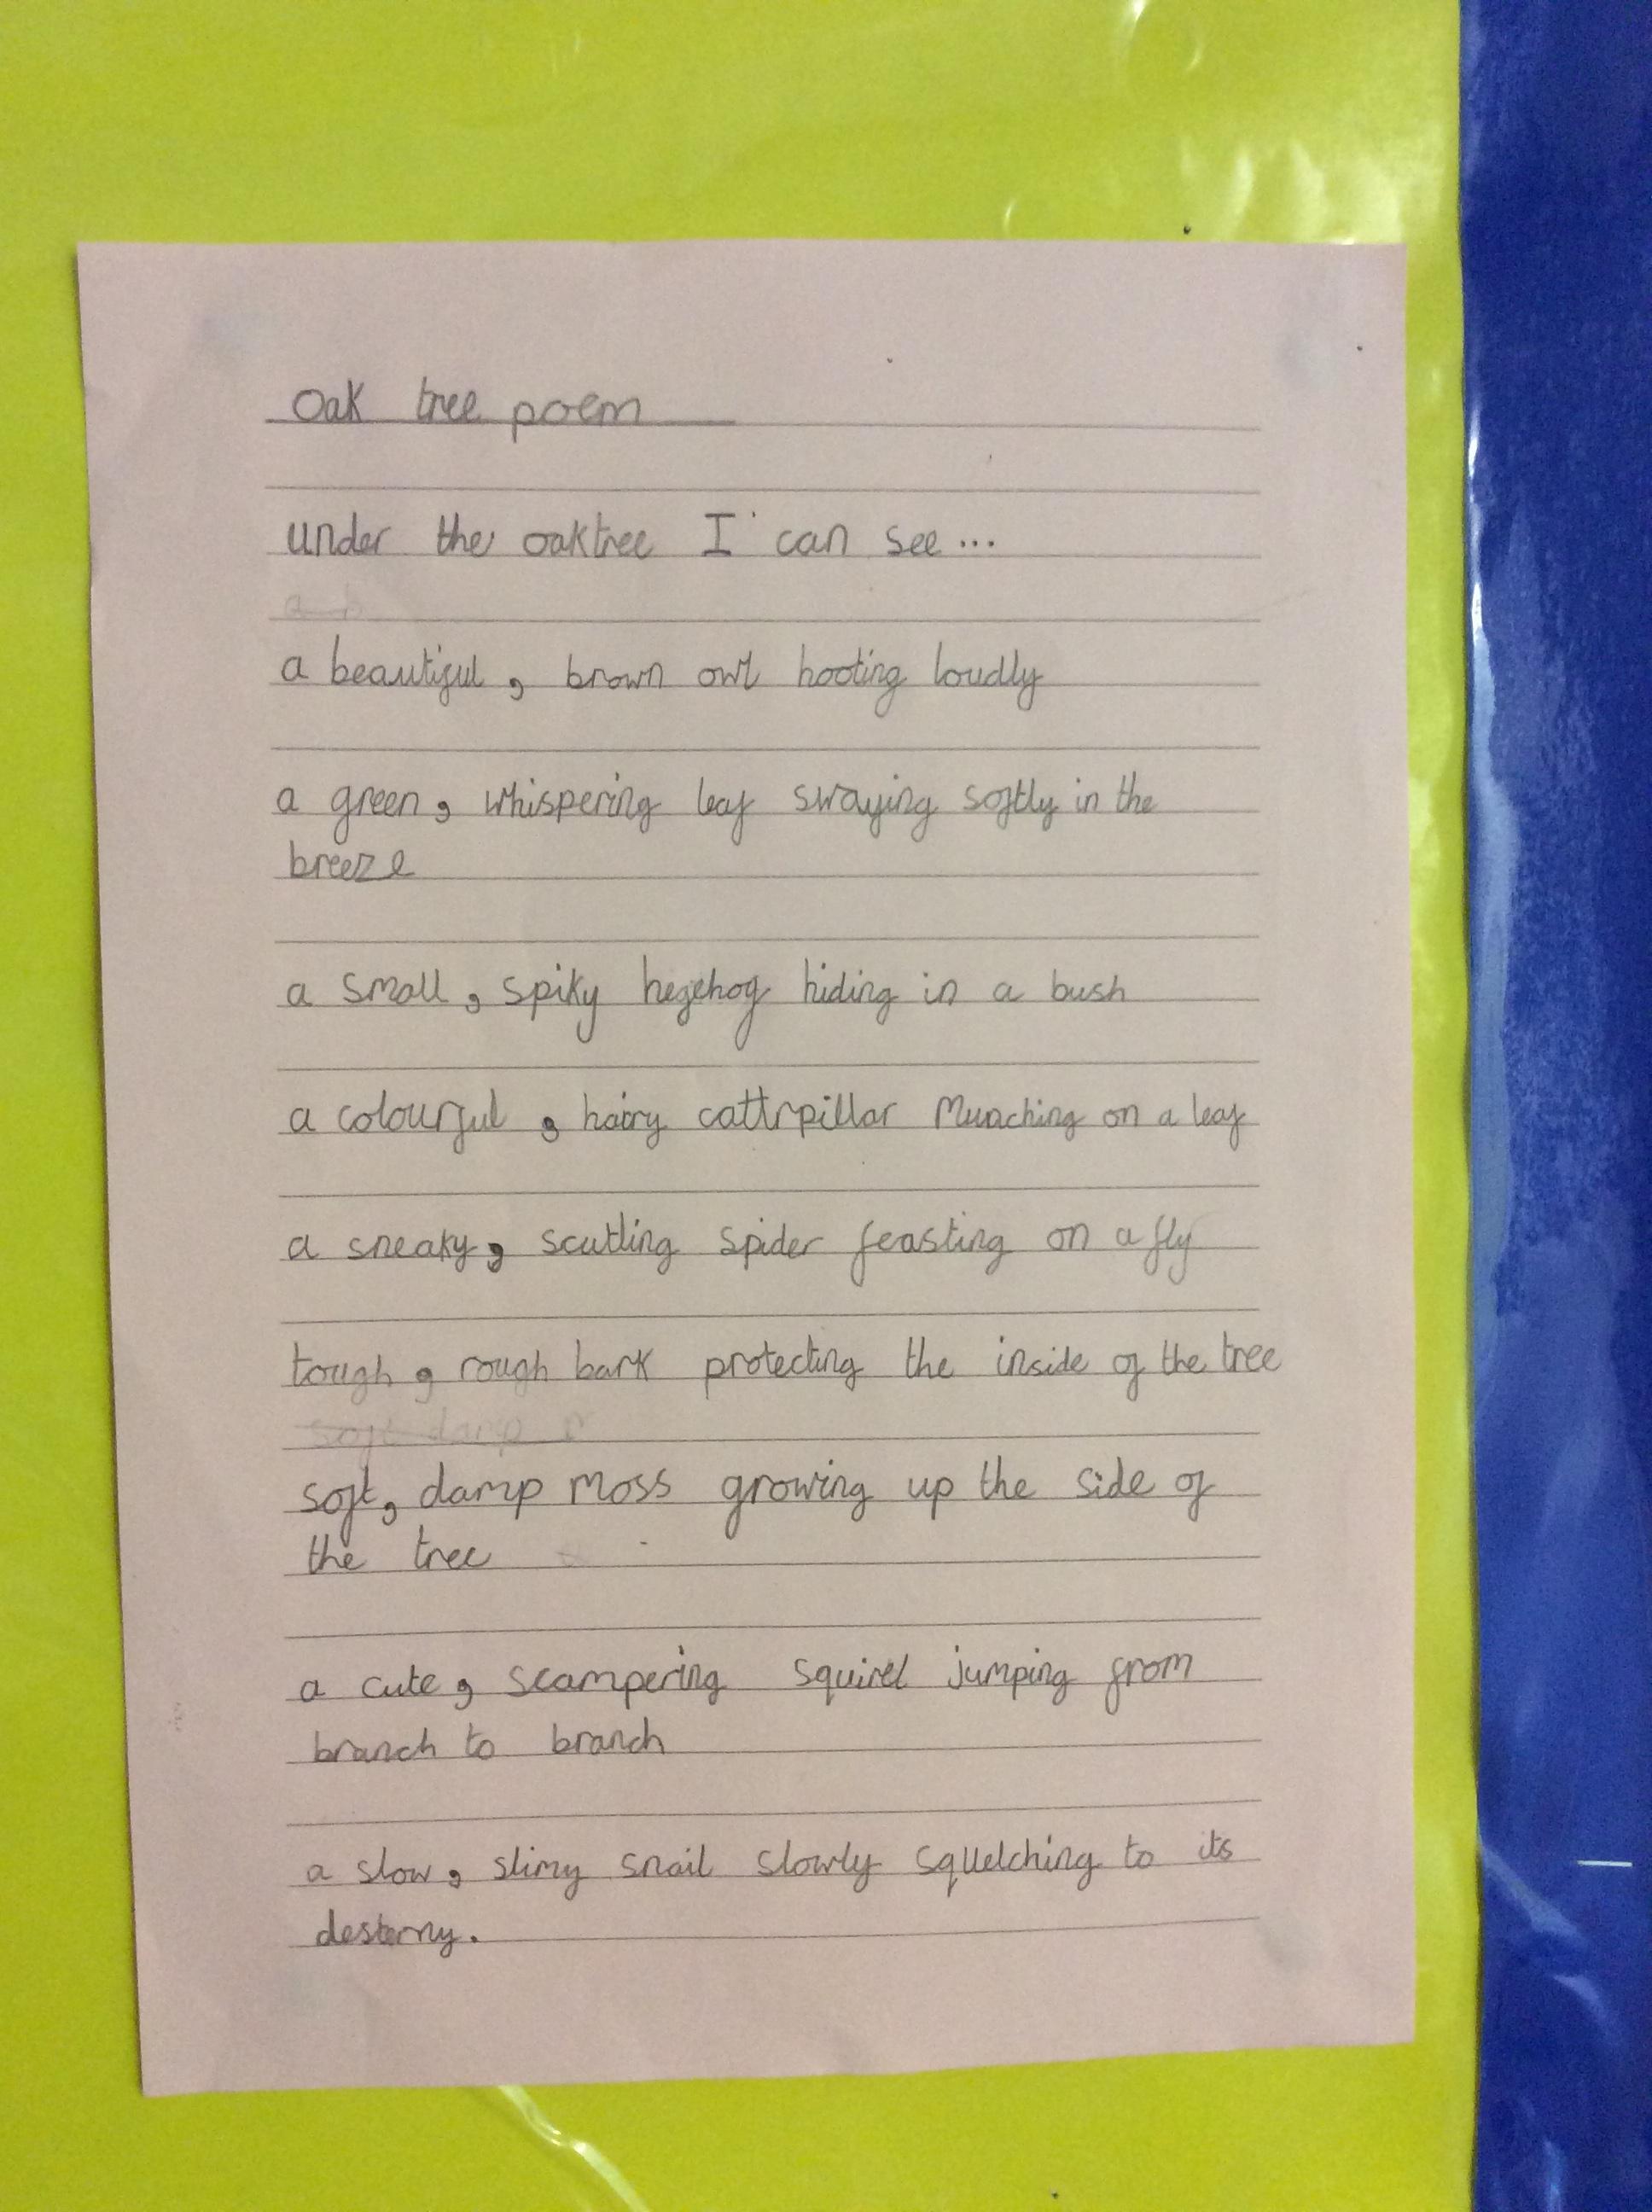 Oak tree poem
under the oaktree I can see...
a beautiful, brown owl hooting loudly
a green, whispering leaf swaying softly in the
breeze
a small, spiky hegehog hiding in a bush
a colourful, hairy cattrpillar Munching on a leaf
a sneaky, scutling spider feasting on a fly
tough, rough bark protecting the inside of the tree
soft damp
soft, damp moss growing up the side of
the tree
a cute, scampering squirel jumping from
branch to branch
a slow, slimy snail slowly squelching to its
desterny.